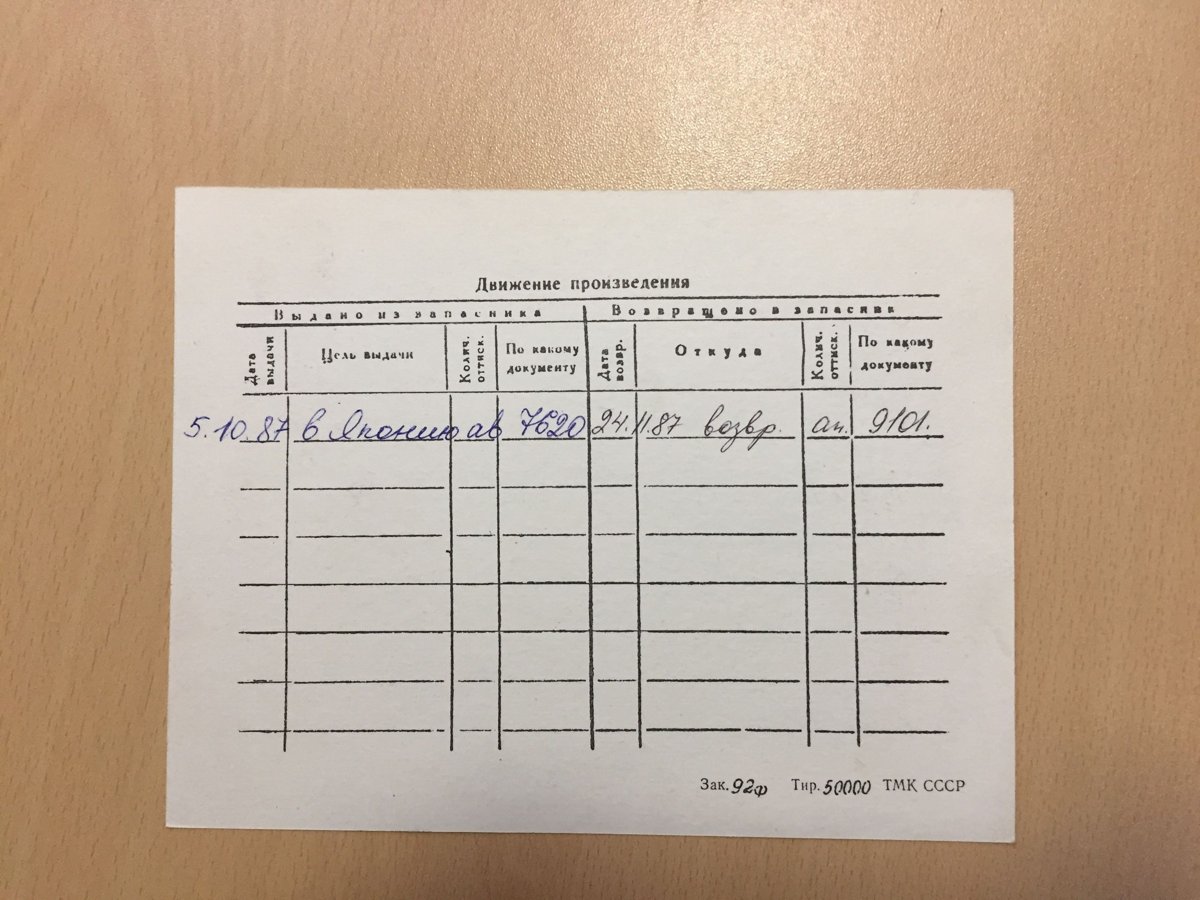 Движение произведения
Выдано из запасника Возвращено в запасник
Дата выдачи Цель выдачи Колич. оттиск. По какому документу Дата возвр. Откуда Колич. оттиск. По какому документу
5.10.87 в Японию ав 7620 24.11.87 возвр. ап. 9101.
Зак. 92ф Тир. 50000 ТМК СССР